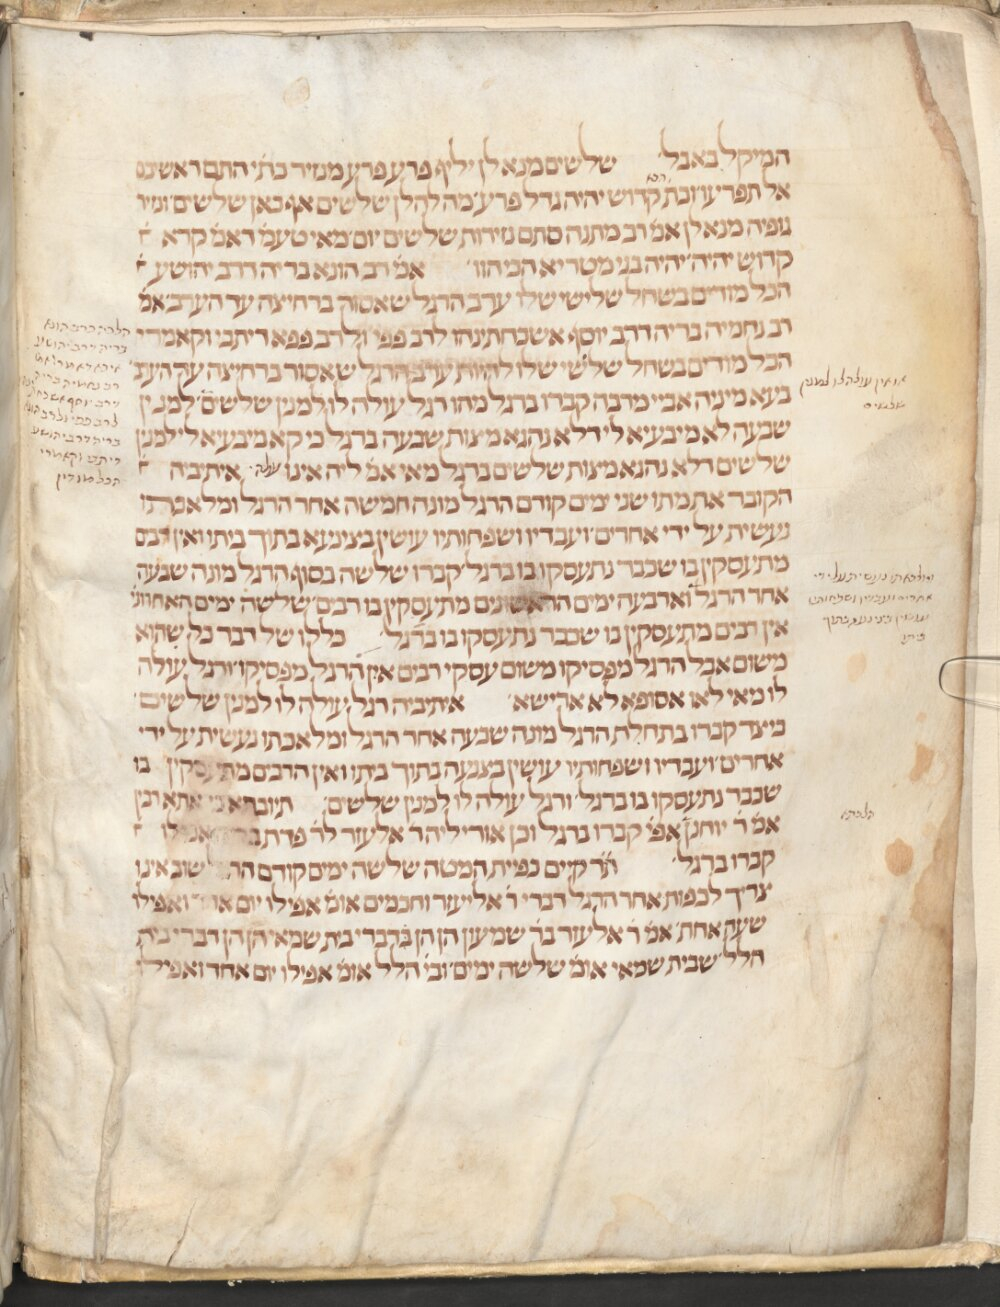 המיקל באבל׳ שלשים מנא לן יליף פרע פרע מנזיר כתי׳ התם ראשיכם
הכא
אל תפרעו וכת קדוש יהיה גדל פרע׳ מה להלן שלשים אף כאן שלשים׳ ונזיר
גופיה מנא לן אמ׳ רב מתנה סתם נזירות שלשים יום׳ מאי טעמ׳ דאמ׳ קרא
קדוש יהיה׳ יהיה בגימטריא הכי הוו׳ אמ׳ רב הונא בריה דרב יהושע
הכל מודים בשחל שלישי שלו ערב הרגל שאסור ברחיצה עד הערב׳ אמ׳
רב נחמיה בריה דרב יוסף אשכחתינהו לרב פפי׳ ולרב פפא דיתבי וקאמרי
הכל מודים בשחל שלשי שלו להיות ערב הרגל שאסור ברחיצה עד הערב
בעא מיניה אביי מרבה קברו ברגל מהו רגל עולה לו למנין שלשים׳ למנין
שבעה לא מיבעיא לי דלא נהגא מצות שבעה ברגל כי קא מיבעיא לי למנין
שלשים דלא נהגא מצות שלשים ברגל מאי אמ׳ ליה אינו עולה׳ איתיביה
הקובר את מתו שני ימים קודם הרגל מונה חמשה אחר הרגל ומלאכתו
נעשית על ידי אחרים׳ ועבדיו ושפחותיו עושין בצינעא בתוך ביתו ואין רבים
מתעסקין בו שכבר נתעסקו בו ברגל׳ קברו שלשה בסוף הרגל מונה שבעה
אחד הרגל׳ וארבעה ימים הראשונים מתעסקין בו רבים׳ שלשה ימים האחווני
אין רבים מתעסקין בו שכבר נתעסקו בו ברגל׳ כללו של דבר כל שהוא
משום אבל הרגל מפסיקו משום עסקי רבים אין הרגל מפסיקו׳ ורגל עולה
לו מאי לאו אסופא לא ארישא׳ איתיביה רגל עולה לו למנין שלשים׳
כיצד קברו בתחלת הרגל מונה שבעה אחר הרגל ומלאכתו נעשית על ידי
אחרים׳ ועבדיו ושפחותיו עושין בצנעה בתוך ביתו ואין הרבים מתעסקין בו
שכבר נתעסקו בו ברגל׳ ורגל עולה לו למנין שלשים׳ תיובתא כי אתא רבין
אמ׳ ר׳ יוחנן אפי׳ קברו ברגל וכן אורי ליה ר׳ אלעזר לר׳ פדת בריה אפילו
קברו ברגל׳ ת׳ר קיים כפיית המטה שלשה ימים קודם הרגל שוב אינו
צריך לכפות אחר הרגל דברי ר׳ אליעזר וחכמים אומ׳ אפילו יום אחד ואפילו
שעה אחת׳ אמ׳ ר׳ אלעזר בר׳ שמעון הן הן כדברי בית שמאי הן הן דברי בית
הלל שבית שמאי אומ׳ שלשה ימים׳ ובי׳ הלל אומ׳ אפילו יום אחד ואפילו
הלכה כרב הונא
בריה דרב יהושע
איכא דאמרי אמ׳
רב נחמיה בריה
דרב יוסף אשכחתינהו
לרב פפי ולרב הונא
בריה דרב יהושע
דיתבי וקאמרי
הכל מודין
או אין עולה לו למנין
שלשים
ומלאכתו נעשית על ידי
אחרים ועבדיו ושפחותיו
עושין בצינעא בתוך
ביתו
הלכתא